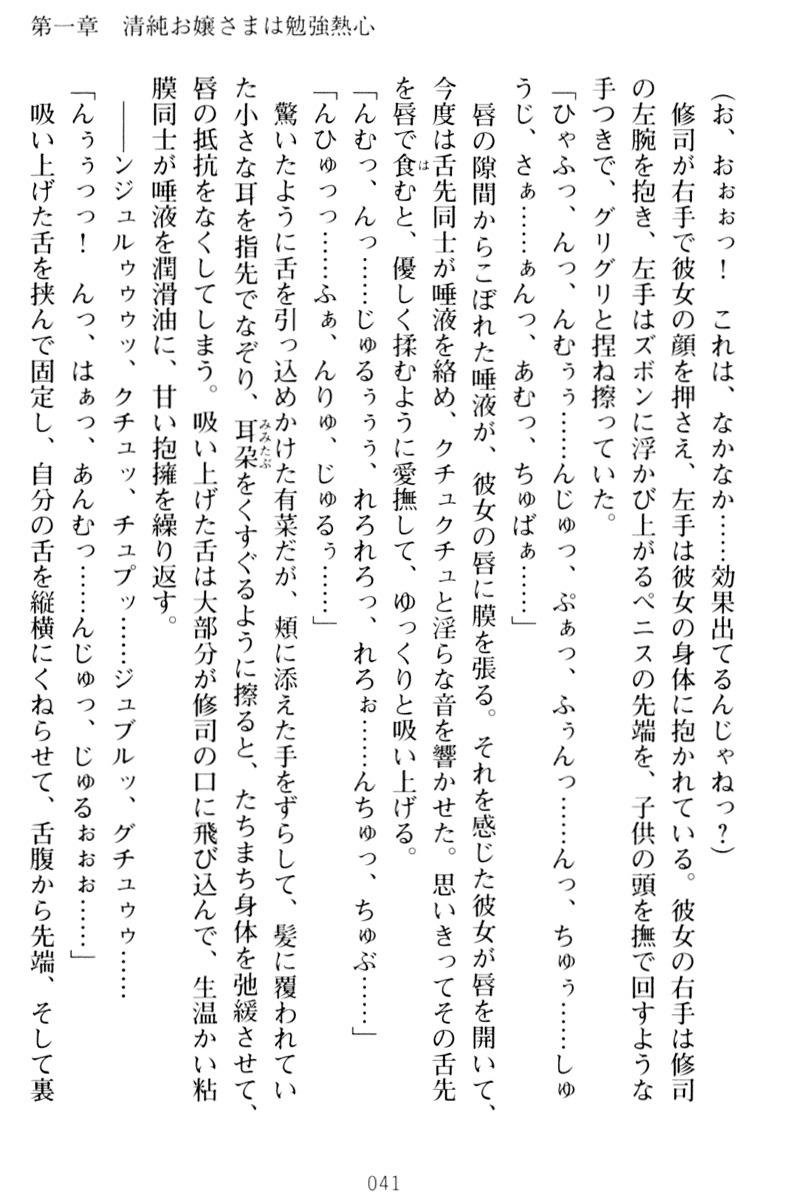 第一章　清純お嬢さまは勉強熱心
(お、おぉぉっ！　これは、なかなか……効果出てるんじゃねっ？)
　修司が右手で彼女の顔を押さえ、左手は彼女の身体に抱かれている。彼女の右手は修司
の左腕を抱き、左手はズボンに浮かび上がるペニスの先端を、子供の頭を撫で回すような
手つきで、グリグリと捏ね擦っていた。
「ひゃふっ、んっ、んむぅぅ……んじゅっ、ぷぁっ、ふぅんっ……んっ、ちゅぅ……しゅ
うじ、さぁ……ぁんっ、あむっ、ちゅばぁ……」
　唇の隙間からこぼれた唾液が、彼女の唇に膜を張る。それを感じた彼女が唇を開いて、
今度は舌先同士が唾液を絡め、クチュクチュと淫らな音を響かせた。思いきってその舌先
を唇で食むと、優しく揉むように愛撫して、ゆっくりと吸い上げる。
「んむっ、んっ……じゅるぅぅぅ、れろれろっ、れろぉ……んちゅっ、ちゅぶ……」
「んひゅっっ……ふぁ、んりゅ、じゅるぅ……」
　驚いたように舌を引っ込めかけた有菜だが、頬に添えた手をずらして、髪に覆われてい
た小さな耳を指先でなぞり、耳朶をくすぐるように擦ると、たちまち身体を弛緩させて、
唇の抵抗をなくしてしまう。吸い上げた舌は大部分が修司の口に飛び込んで、生温かい粘
膜同士が唾液を潤滑油に、甘い抱擁を繰り返す。
　――ンジュルゥゥゥッ、クチュッ、チュプッ……ジュブルッ、グチュゥゥ……
「んぅぅっっ！　んっ、はぁっ、あんむっ……んじゅっ、じゅるぉぉぉ……」
　吸い上げた舌を挟んで固定し、自分の舌を縦横にくねらせて、舌腹から先端、そして裏
041